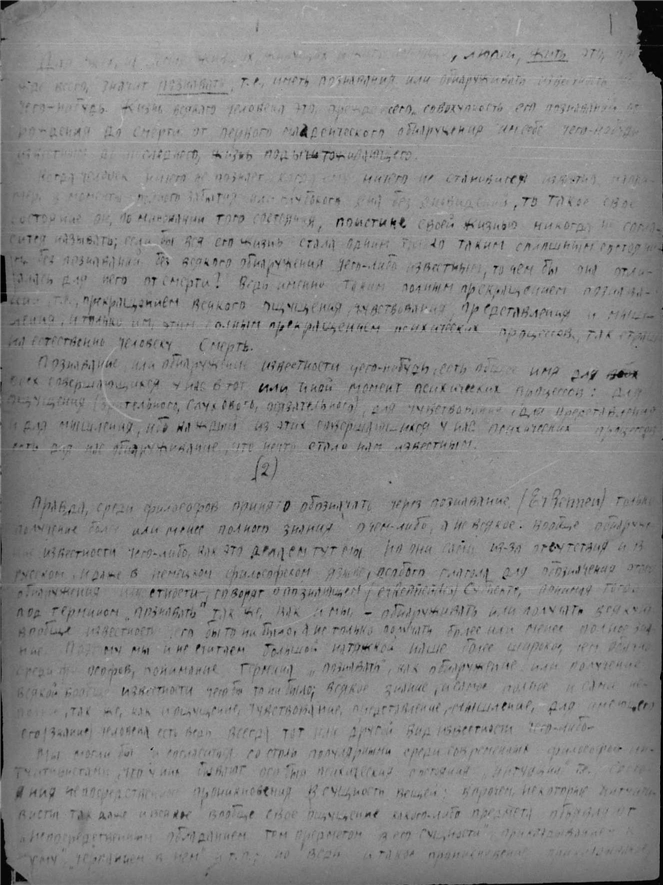 Для , людей, жить это, пре-
жде всего, значит познавать, т.е. иметь познавания или обнаруживать известность
чего-нибудь. Жизнь всякого человека это, прежде всего, совокупность его познаваний от
рождения до смерти от первого младенческого обнаружения чего-нибудь
известного до последнего, жизнь подытоживающего.
Когда человек ничего не познает, когда ему ничего не становится известно, напри-
мер в моменты полного забытья или глубокого сна без сновидений, то такое свое
состояние он, по миновании того состояния, поистине своей жизнью никогда не согла-
сится называть; если бы вся его жизнь стала одним только таким сплошным состояни-
ем без познаваний, без всякого обнаружения чего-либо известным, то чем бы она отли-
чалась для него от смерти? Ведь именно таким полным прекращением познава-
ний, т.е. прекращением всякого ощущения, чувствования, представления и мыш-
ления, и только им, этим полным прекращением психических процессов, так страш-
на естественно человеку смерть.
Познавание, или обнаружение известности чего-нибудь, есть общее имя для
всех совершающихся у нас в тот или иной момент психических процессов: для
ощущения (зрительного, слухового, осязательного), для чувствования, для представления
и для мышления, ибо каждый из этих совершающихся у нас психических процессов
есть для нас обнаруживание, что нечто стало нам известным.
(2)
Правда, среди философов принято обозначать через познавание (Erkennen) только
получение более или менее полного знания о чем-либо, а не всякое вообще обнаруже-
ние известности чего-либо, как это делаем тут мы. Но они сами из-за отсутствия и в
русском, и даже в немецком философском языке, особого глагола для обозначения этого
обнаружения известности говорят о познающем субъекте, понимая тогда
под термином „познавать" так же, как и мы - обнаруживать или получать всякую
вообще известность чего бы то ни было, а не только получать более или менее полное зна-
ние. Поэтому мы и не считаем большой натяжкой наше более широкое, чем обычно
среди философов, понимание термина „познавать", как обнаружение или получение
всякой вообще известности чего бы то ни было; всякое знание, и самое полное и самое не-
полное, так же, как и ощущение, чувствование, представление, мышление, для имеющего
его (знание) человека есть ведь всегда тот или другой вид известности чего-либо.
Мы могли бы и согласиться со столь популярными среди современных философов ин-
туитивистами, что у них бывают особые психические состояния „интуиции" т.е. состоя-
ния непосредственного проникновения в сущность вещей; впрочем, некоторые интуити-
висты так даже и всякое вообще свое ощущение какого-либо предмета объявляют
„непосредственным обладанием тем предметом в его сущности",
„ в нем" и т.п.; но ведь и такое проникновение,